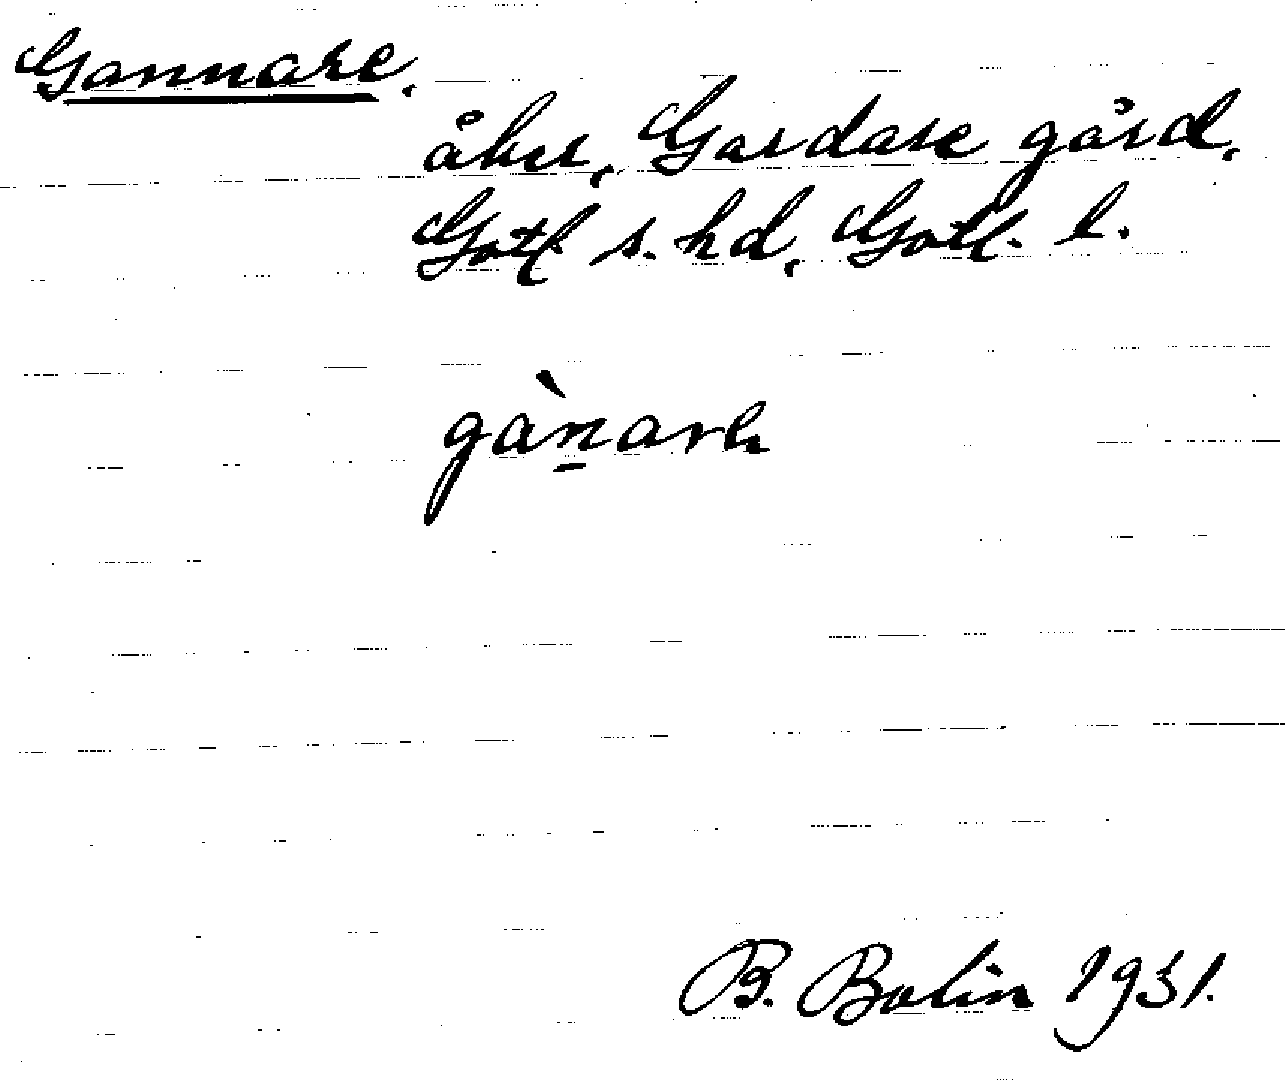 Gannare.
åker, Gardare gård,
Gotl. s. hd, Gotl. l.
gàn̠arɐ
B. Bolin 1931.